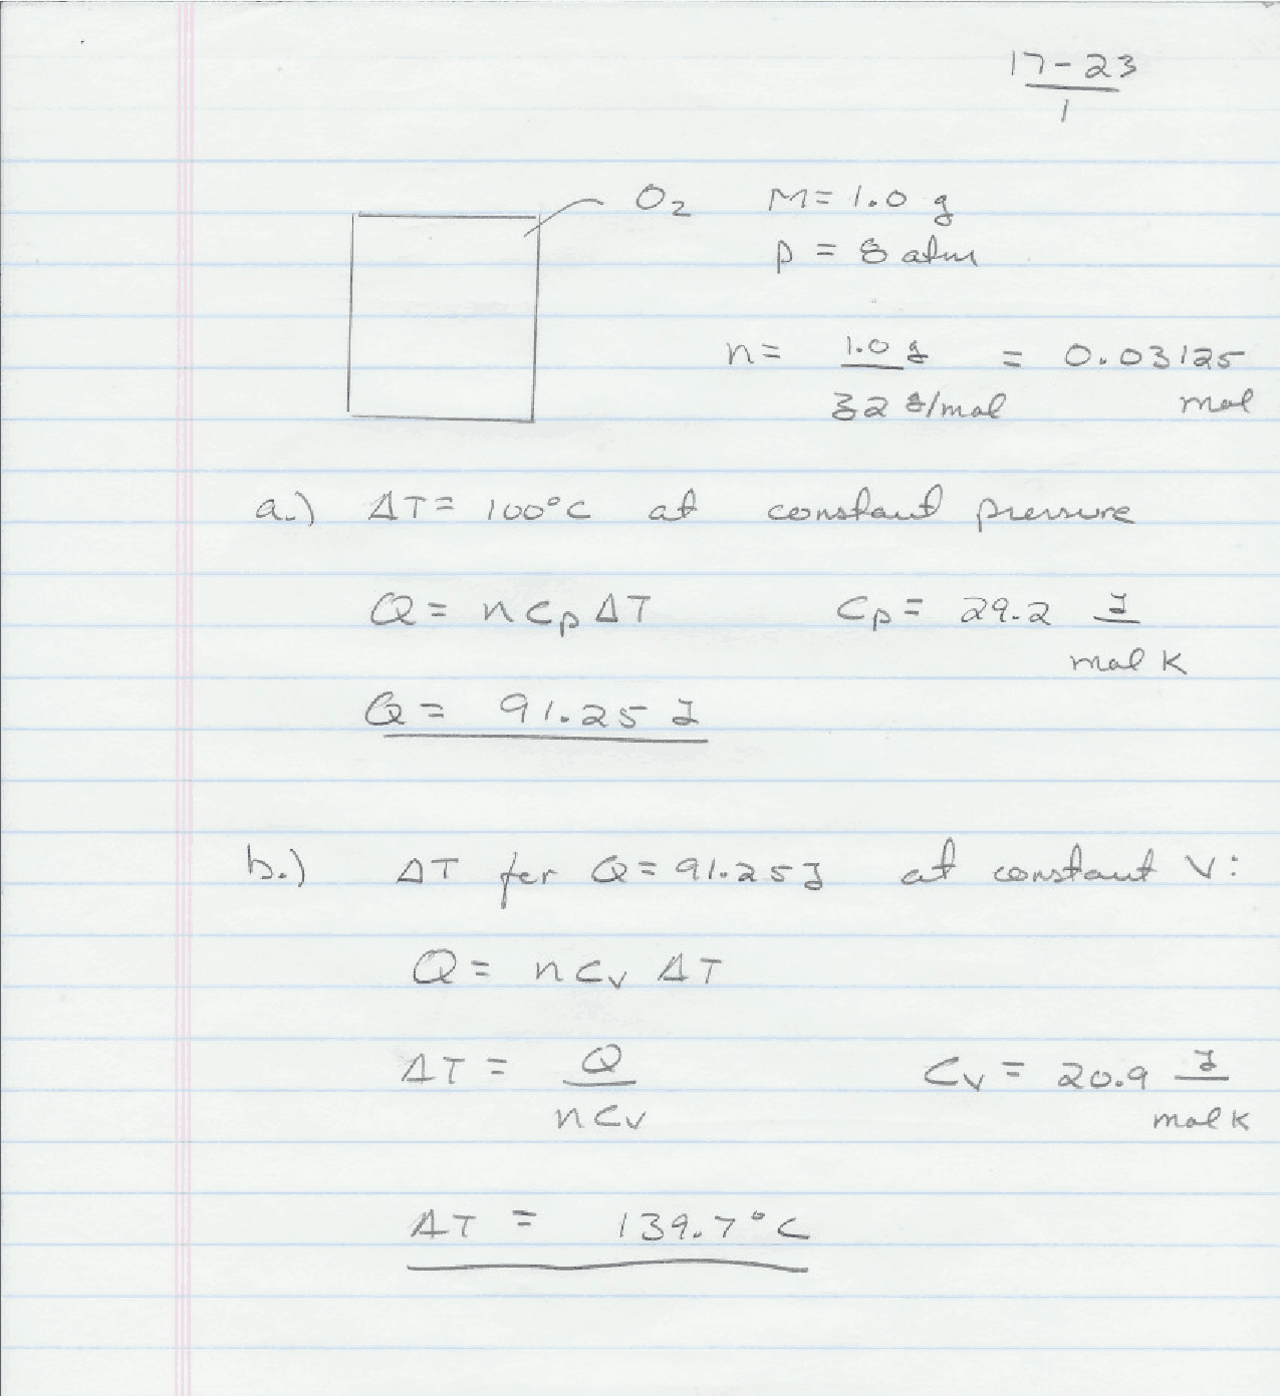 17-23
1
O₂ M = 1.0 g
P = 8 atm
n = 1.0 g / 32 g/mol = 0.03125 mol
a.) ΔT = 100°C at constant pressure
Q = n Cp ΔT Cp = 29.2 J / mol K
Q = 91.25 J
b.) ΔT for Q = 91.25 J at constant V:
Q = n Cv ΔT
ΔT = Q / n Cv Cv = 20.9 J / mol K
ΔT = 139.7°C